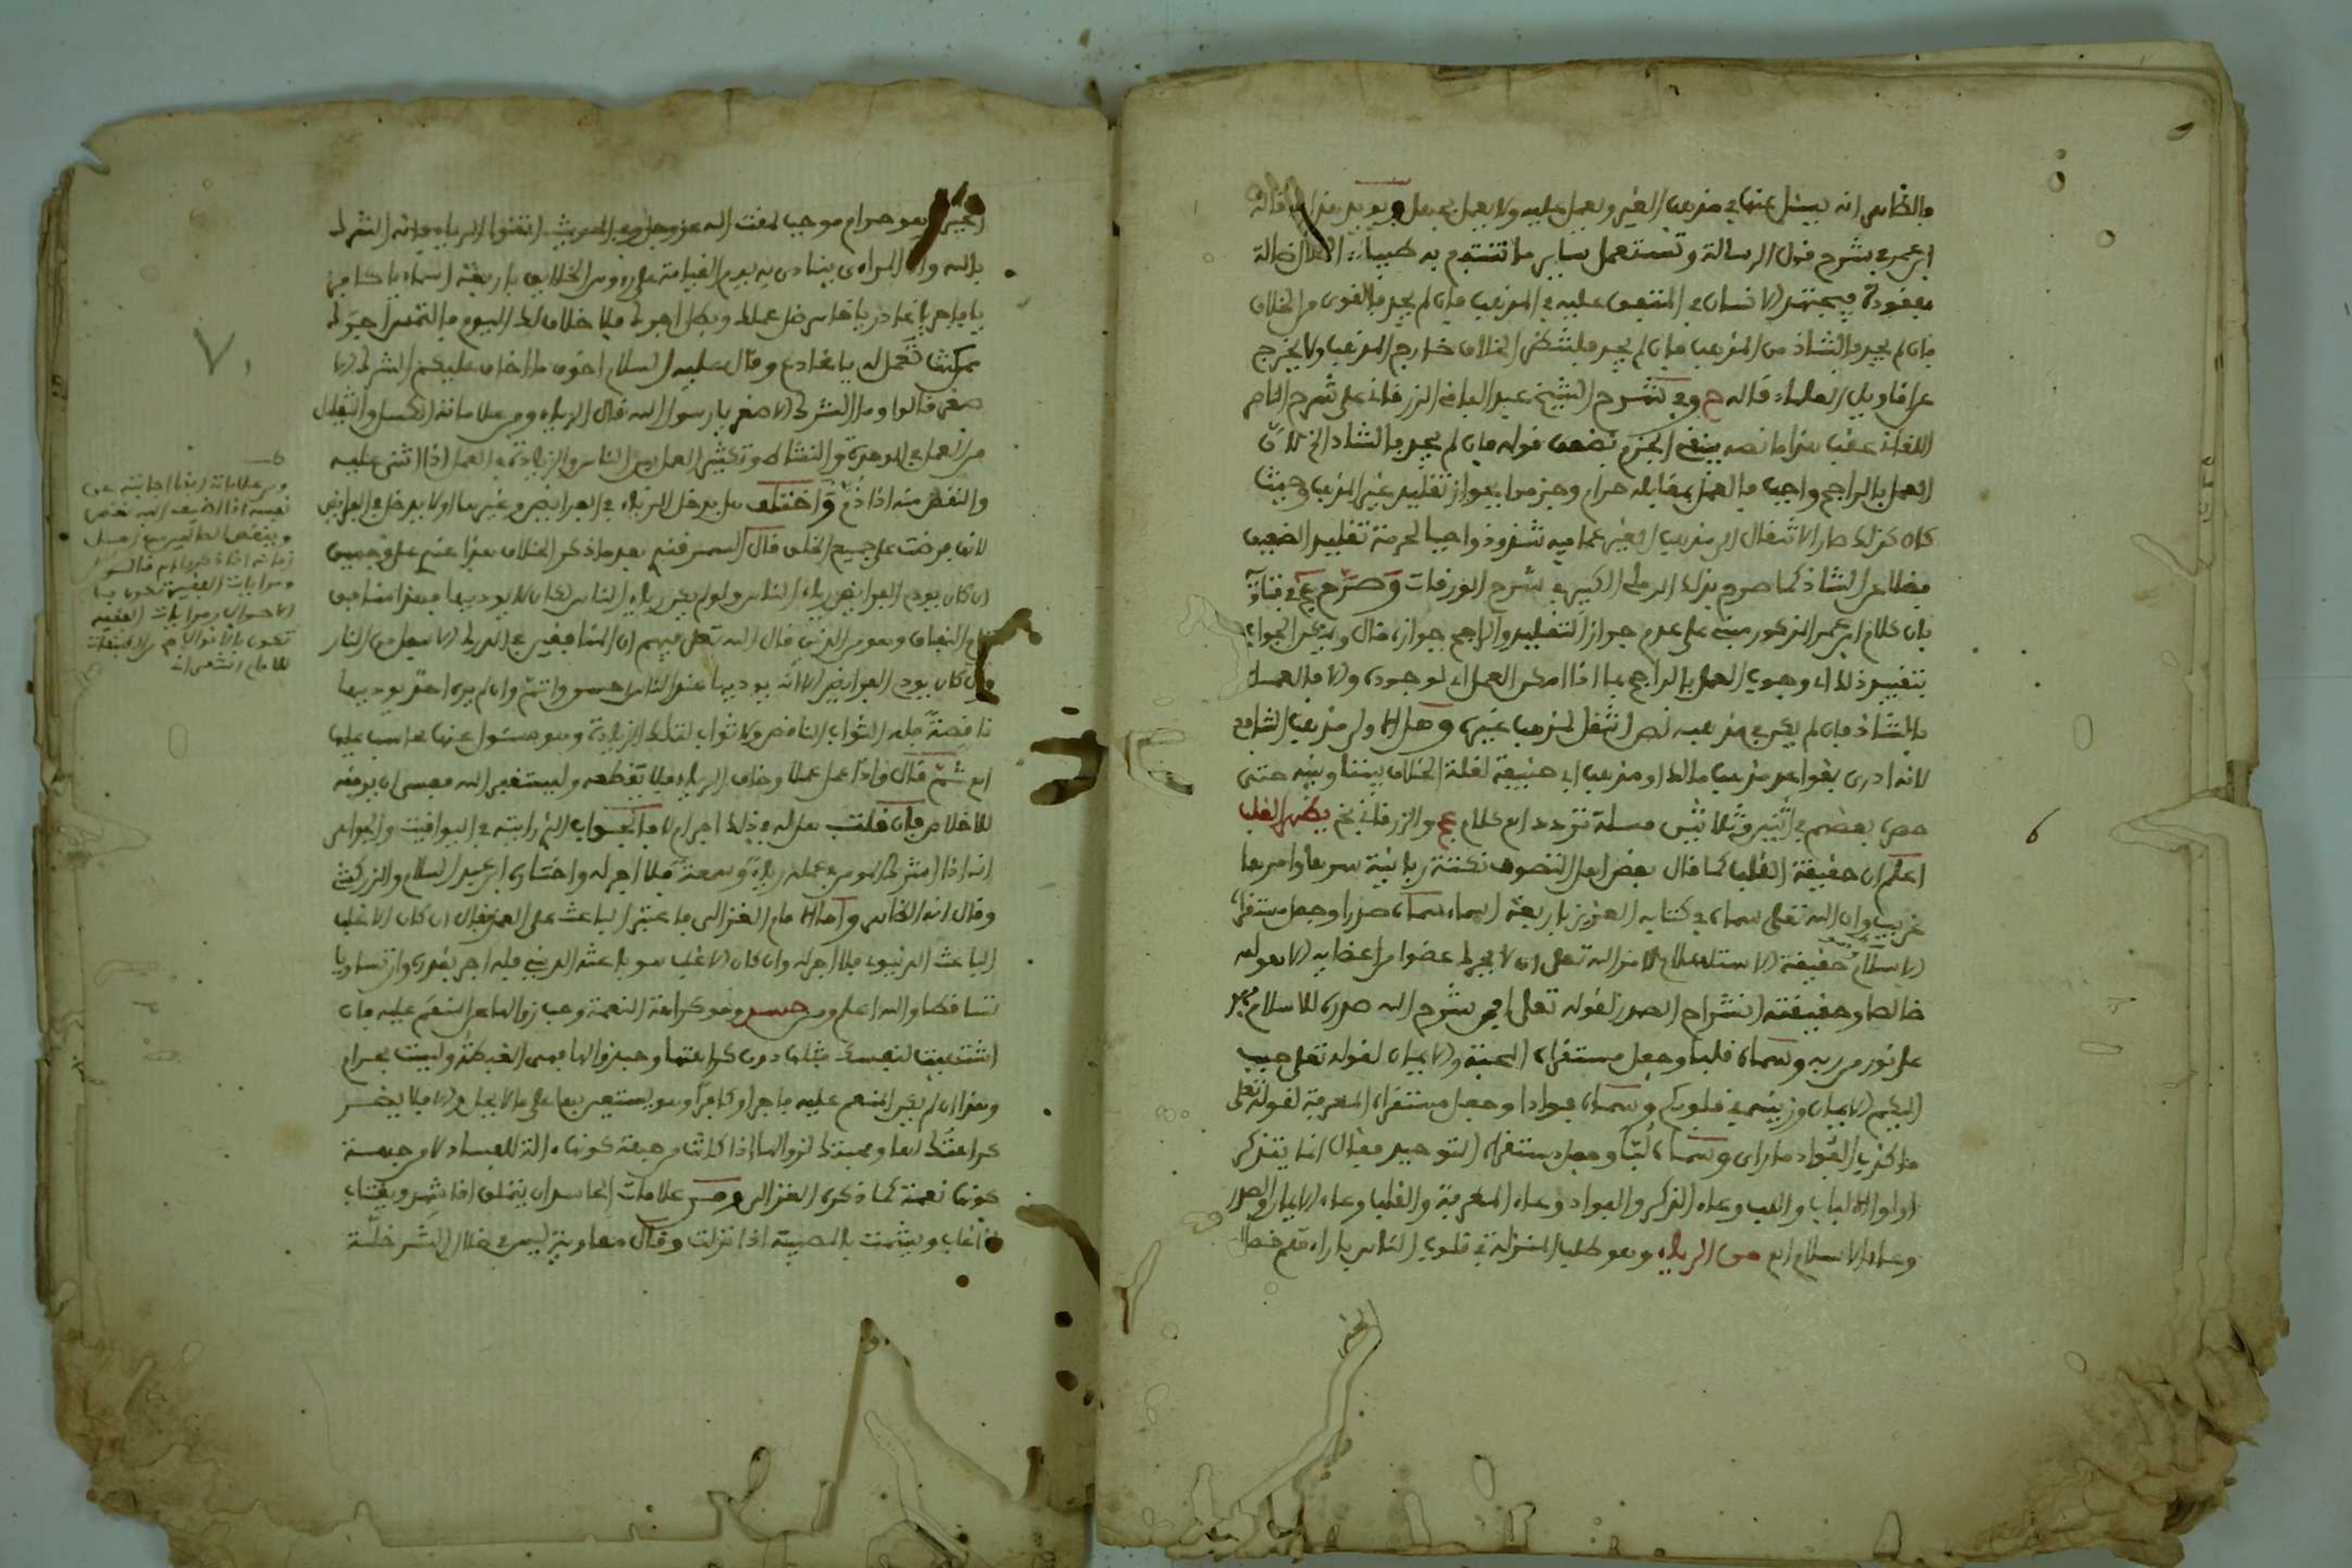 فالظاهر انه يسئل عنها في مذهب الغير ويعمل عليه ولا يعمل بجهل ويويد هذا ما قاله
ابن عمر في شرح قول الرسالة وتستعمل سائر ما تنتفع به طيبا الحلال ضالة
مفقودة فيجتهد الانسان في المتفق عليه في المذهب فان لم يجد فالقوي من الخلاف
فان لم يجد فالشاذ من المذهب فان لم يجد فلينظر الخلاف خارج المذهب ولا يخرج
عن اقاويل العلماء قاله ح وفي شرح الشيخ عبد الباقي الزرقاني على شرح الامام
اللقاني عقب هذا ما نصه ينبغي الجزم بضعف قوله فان لم يجد فالشاذ الخ لان
العمل بالراجح واجب فالعمل بمقابله حرام وجزموا بجواز تقليد غير المذهب وحيث
كان كذلك صار الانتقال الى مذهب الغير عما فيه شذوذ واجبا لحرمة تقليد الضعيف
فضلا عن الشاذ كما صرح بذلك الرملي الكبير في شرح الورقات وصرح عج في فتاويه
بان كلام ابن عمر المذكور مبني على عدم جواز التقليد والراجح جوازه قال ويمكن الجواب
بتقييد ذلك اي وجوب العمل بالراجح بما اذا امكن العمل اي لوجوده والا فالعمل
بالشاذ فان لم يكن في مذهبه نص انتقل لمذهب غيره وهل الاولى مذهب الشافعي
لانه ادرى بقواعد مذهب مالك او مذهب ابي حنيفة لقلة الخلاف بيننا وبينه حتى
حصره بعضهم في اثنين وثلاثين مسئلة تردد اه كلام عج والزرقاني ثم يطهر القلب
اعلم ان حقيقة القلب كما قال بعض اهل التصوف نكتة ربانية سرها وامرها
غريب وان الله تعلى سماه في كتابه العزيز باربعة اسماء سماه صدرا وجعل مستقره
الاسلام حقيقة الاستسلام لامر الله تعلى ان لا يحرك عضوا من اعضايه الا بقوله
خالصا وحقيقته انشراح الصدر لقوله تعلى افمن شرح الله صدره للاسلام فهو
على نور من ربه وسماه قلبا وجعل مستقره المحبة والايمان لقوله تعلى حبب
اليكم الايمان وزينه في قلوبكم وسماه فوادا وجعل مستقره المعرفة لقوله تعلى
ما كذب الفواد ما راى وسماه لبا وجعل مستقره التوحيد فقال انما يتذكر
اولوا الالباب واللب وعاء الذكر والفواد وعاء المعرفة والقلب وعاء الايمان والصدر
وعاء الاسلام اه من الرياء وهو طلب المنزلة في قلوب الناس باراءتهم خصال
6
الخير وهو حرام موجب لمقت الله عز وجل وفي الحديث اتقوا الرياء فانه الشرك
بالله وان المراءي ينادى به يوم القيامة على رءوس الخلايق باربعة اسماء يا كافر
يا فاجر يا غادر يا خاسر ضل عملك وبطل اجرك فلا خلاق لك اليوم فالتمس اجرك
ممن كنت تعمل له يا مخادع وقال عليه السلام اخوف ما اخاف عليكم الشرك الا
صغر قالوا وما الشرك الاصغر يا رسول الله قال الرياء ومن علاماته الكسل والتقليل
من العمل في الوحدة والنشاط وتكثير العمل بين الناس والزيادة في العمل اذا اثني عليه
والنقص منه اذا ذم واختلف هل يدخل الرياء في الفرايض وغيرها او لا يدخل في الفرايض
لانها فرضت على جميع الخلق قال السمرقندي بعد ما ذكر الخلاف هذا عندي على وجهين
ان كان يودي الفرايض رياء الناس ولو لم يكن رياء الناس لكان لا يوديها فهذا منافق
تام النفاق وهو من الذين قال الله تعلى فيهم ان المنافقين في الدرك الاسفل من النار
وان كان يودي الفرايض الا انه يوديها عند الناس احسن واتم وان لم يره احد يوديها
ناقصة فله الثواب الناقص ولا ثواب لتلك الزيادة وهو مسئول عنها محاسب عليها
اه ثم قال واذا عمل عملا وخاف الرياء فلا يقطعه وليستغفر الله فعسى ان يوفقه
للاخلاص فان قلت هل له في ذلك اجر ام لا فالجواب الذي رايته في اليواقيت والجواهر
انه اذا اشرك المومن في عمله رياء وسمعة فلا اجر له واختاره ابن عبد السلام والزركشي
وقال انه الظاهر واما الامام الغزالي فاعتبر الباعث على العمل فقال ان كان الاغلب
الباعث الدنيوي فلا اجر له وان كان الاغلب هو باعث الديني فله اجر بقدره وان تساويا
تساقطا والله اعلم ومن حسد وهو كراهة النعمة وحب زوالها عن المنعم عليه فان
اشتهيت لنفسك مثلها دون كراهتها وحب زوالها فهي الغبطة وليست بحرام
وهذا ان لم يكن المنعم عليه فاجرا او كافرا وهو يستعين بها على ما لا يحل والا فلا يضر
كراهتك لها ومحبتك لزوالها اذا كانت من حيث كونها ءالة للفساد لا من جهة
كونها نعمة كما ذكره الغزالي ومن علامات الحاسد ان يتملق اذا شهد ويغتاب
اذا غاب ويشمت بالمصيبة اذا نزلت وقال معاوية ليس في خلال الشر خلة
7
ومن علاماته ايضا اجابته عن
نفسه اذا اضيف اليه نقص